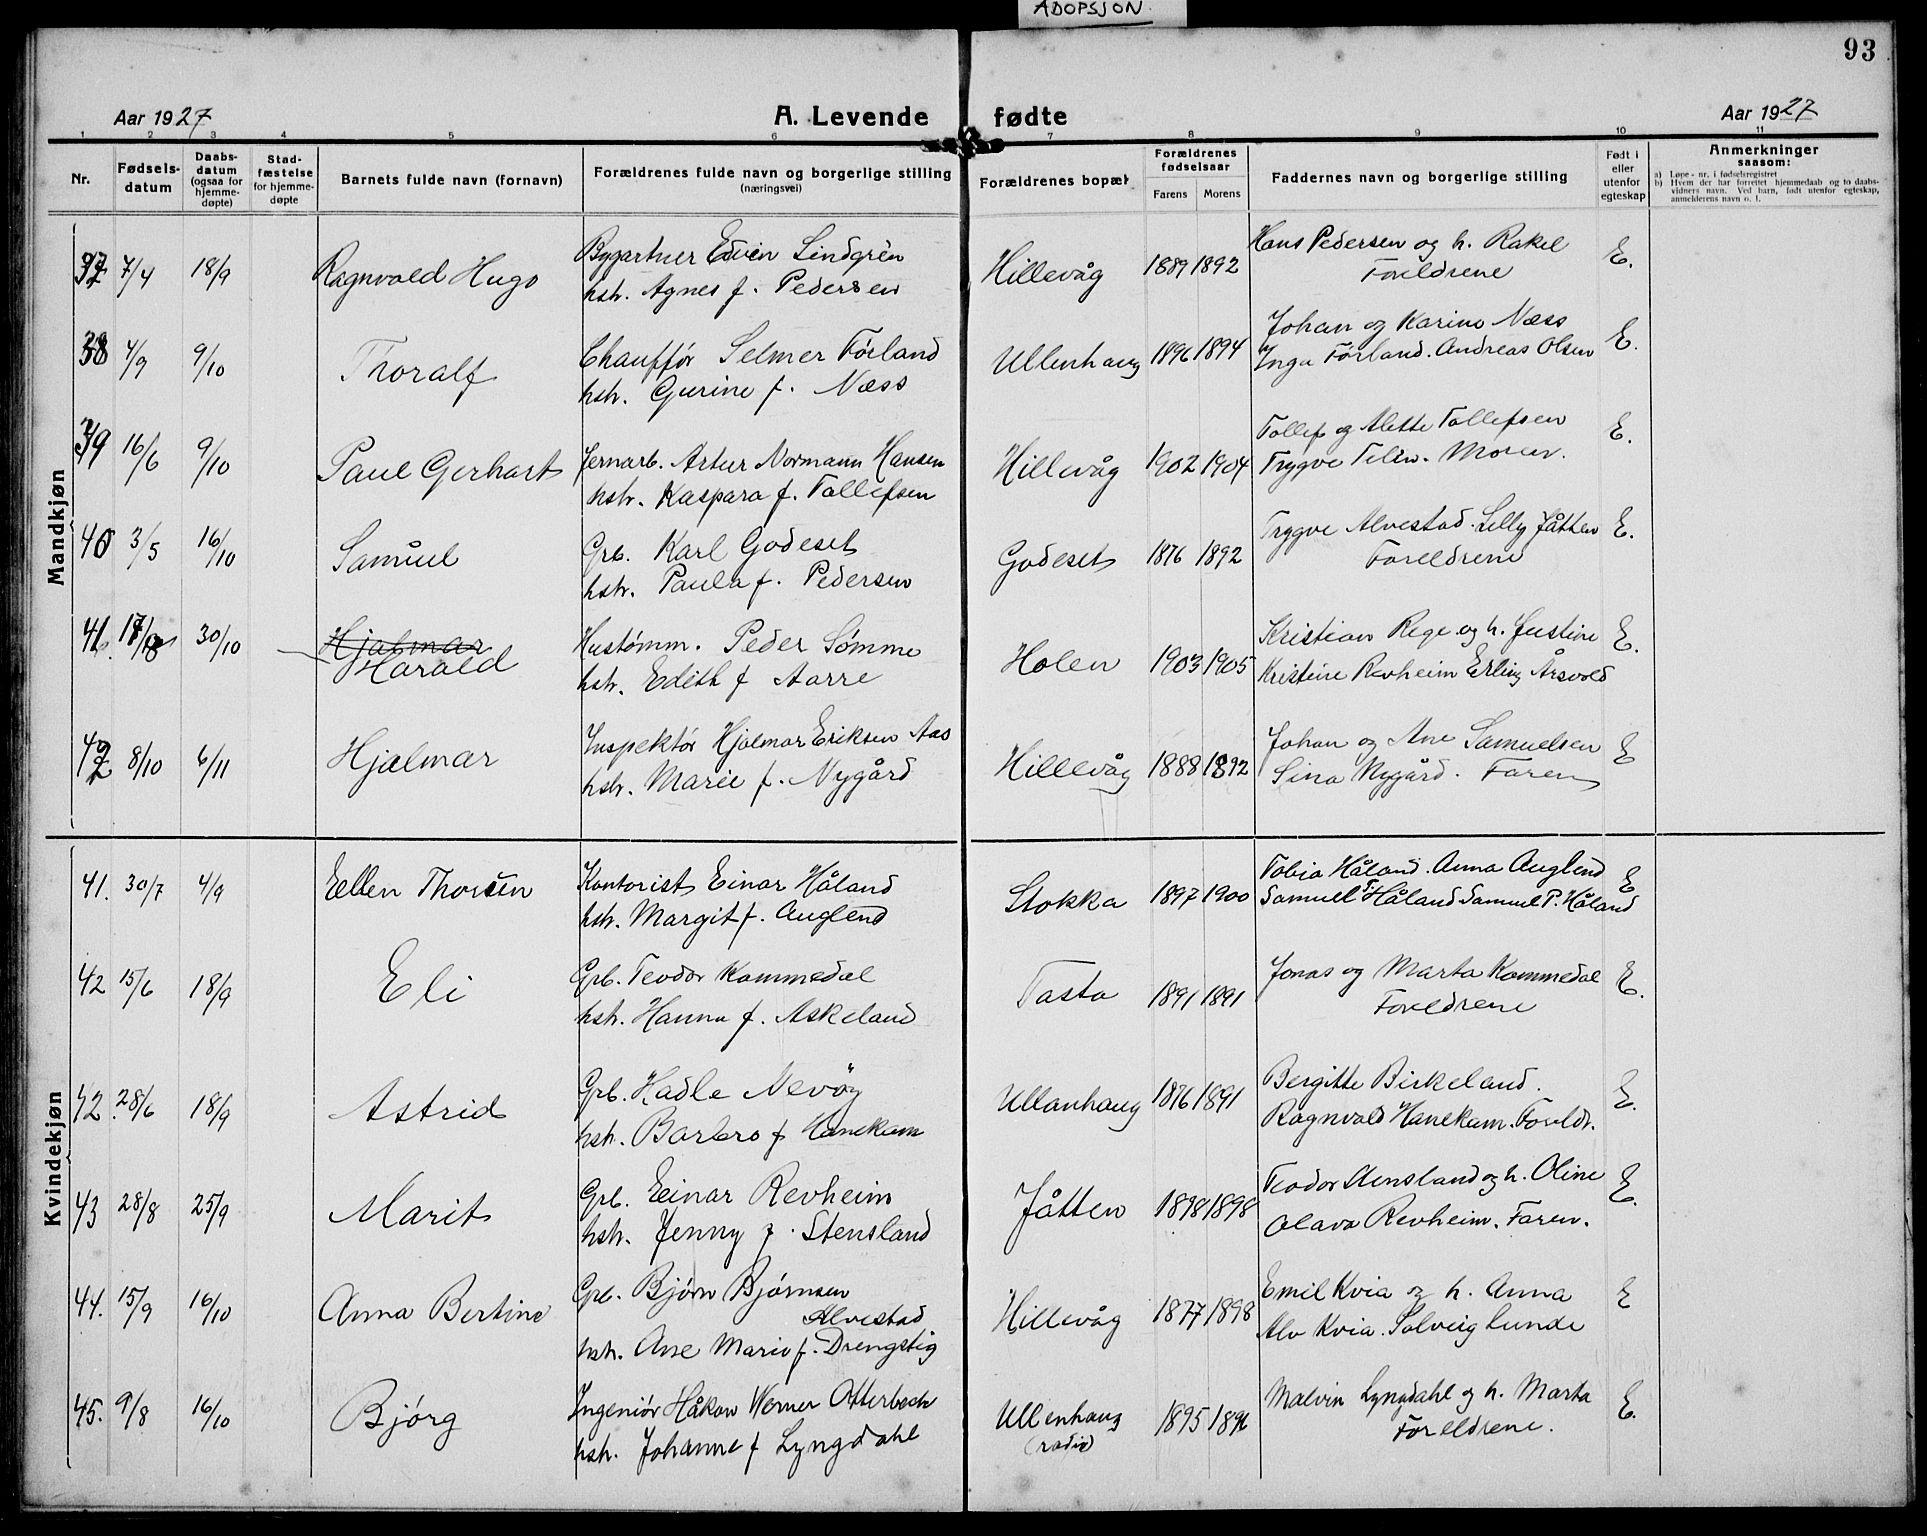 ADOPSJON.
93
Aar 1927
A. Levende fødte
Aar 1927
1 2 3 4 5 6 7 8 9 10 11
Nr.
Fødsels-
datum
Daabs-
datum
(ogsaa for
hjemme-
døpte)
Stad-
fæstelse
for hjemme-
døpte
Barnets fulde navn (fornavn)
Forældrenes fulde navn og borgerlige stilling
(næringsvei)
Forældrenes bopæl
Forældrenes
fødselsaar
Farens Morens
Faddernes navn og borgerlige stilling
Født i
eller
utenfor
egteskap
Anmerkninger
saasom:
a) Løpe-nr. i fødselsregistret
b) Hvem der har forrettet hjemmedaab og to daabs-
vidners navn. Ved barn, født utenfor egteskap,
anmelderens navn o. l.
Mandkjøn
37 7/4 18/9 Ragnvald Hugo
Bygartner Edvin Lindgren
hstr. Agnes f. Pedersen
Hillevåg 1889 1892
Hans Pedersen og h. Rakel
Foreldrene
E.
38 4/9 9/10 Thoralf
Chauffør Selmer Førland
hstr. Gurine f. Næss
Ullenhaug 1896 1894
Johan og Karine Næss
Inga Førland. Andreas Olsen
E.
39 16/6 9/10 Paul Gerhart
Jernarb. Artur Normann Hansen
hstr. Kaspara f. Tollefsen
Hillevåg 1902 1904
Tollef og Alette Tollefsen
Trygve Telin. Moren.
E.
40 3/5 16/10 Samuel
Grb. Karl Godeset
hstr. Paula f. Pedersen
Godeset 1876 1892
Trygve Alvestad. Lilly Jåtten
Foreldrene
E.
41. 30/10 Hjalmar
Harald
Hustømm. Peder Sømme
hstr. Edith f Aarre
Holen 1903 1905
Kristian Rege og h. Justine
Kristine Revheim Erling Årsvold
E.
42 8/10 6/11 Hjalmar
Inspektør Hjalmar Eriksen Aas
hstr. Marie f. Nygård
Hillevåg 1888 1892
Johan og Ane Samuelsen
Sina Nygård. Faren
E
Kvindekjøn
41. 30/7 4/9 Ellen Thorsen
Kontorist Einar Håland
hstr. Margit f. Auglend
Stokka 1897 1900
Tobia Håland. Anna Auglend
Samuel T. Håland Samuel P. Håland
E
42 15/6 18/9 Eli
Grb. Teodor Kommedal
hstr. Hanna f. Askeland
Tasta 1891 1891
Jonas og Marta Kommedal
Foreldrene
E.
42. 28/6 18/9 Astrid
Grb. Hadle Nevöy
hstr. Barbro f Hanekam
Ullanhaug 1876 1891
Bergitte Birkeland.
Ragnvald Hanekam. Foreldr.
E.
43 28/8 25/9 Marit
Grb. Einar Revheim
hstr. Jenny f. Stensland
Jåtten 1898 1898
Teodor Stensland og h. Oline
Olava Revheim. Faren.
E.
44. 15/9 16/10 Anna Bertine
Grb. Bjørn Bjørnsen
Alvestad
hstr. Ane Marie f. Drengstig
Hillevåg 1877 1898
Emil Kvia og h. Anna
Alv Kvia. Solveig Lunde
E
45. 9/8 16/10 Bjørg
Ingeniør Håkon Werner Otterbech
hstr. Johanne f Lyngdahl
Ullenhaug
(radio)
1895 1896
Malvin Lyngdahl og h. Marta
Foreldrene.
E.